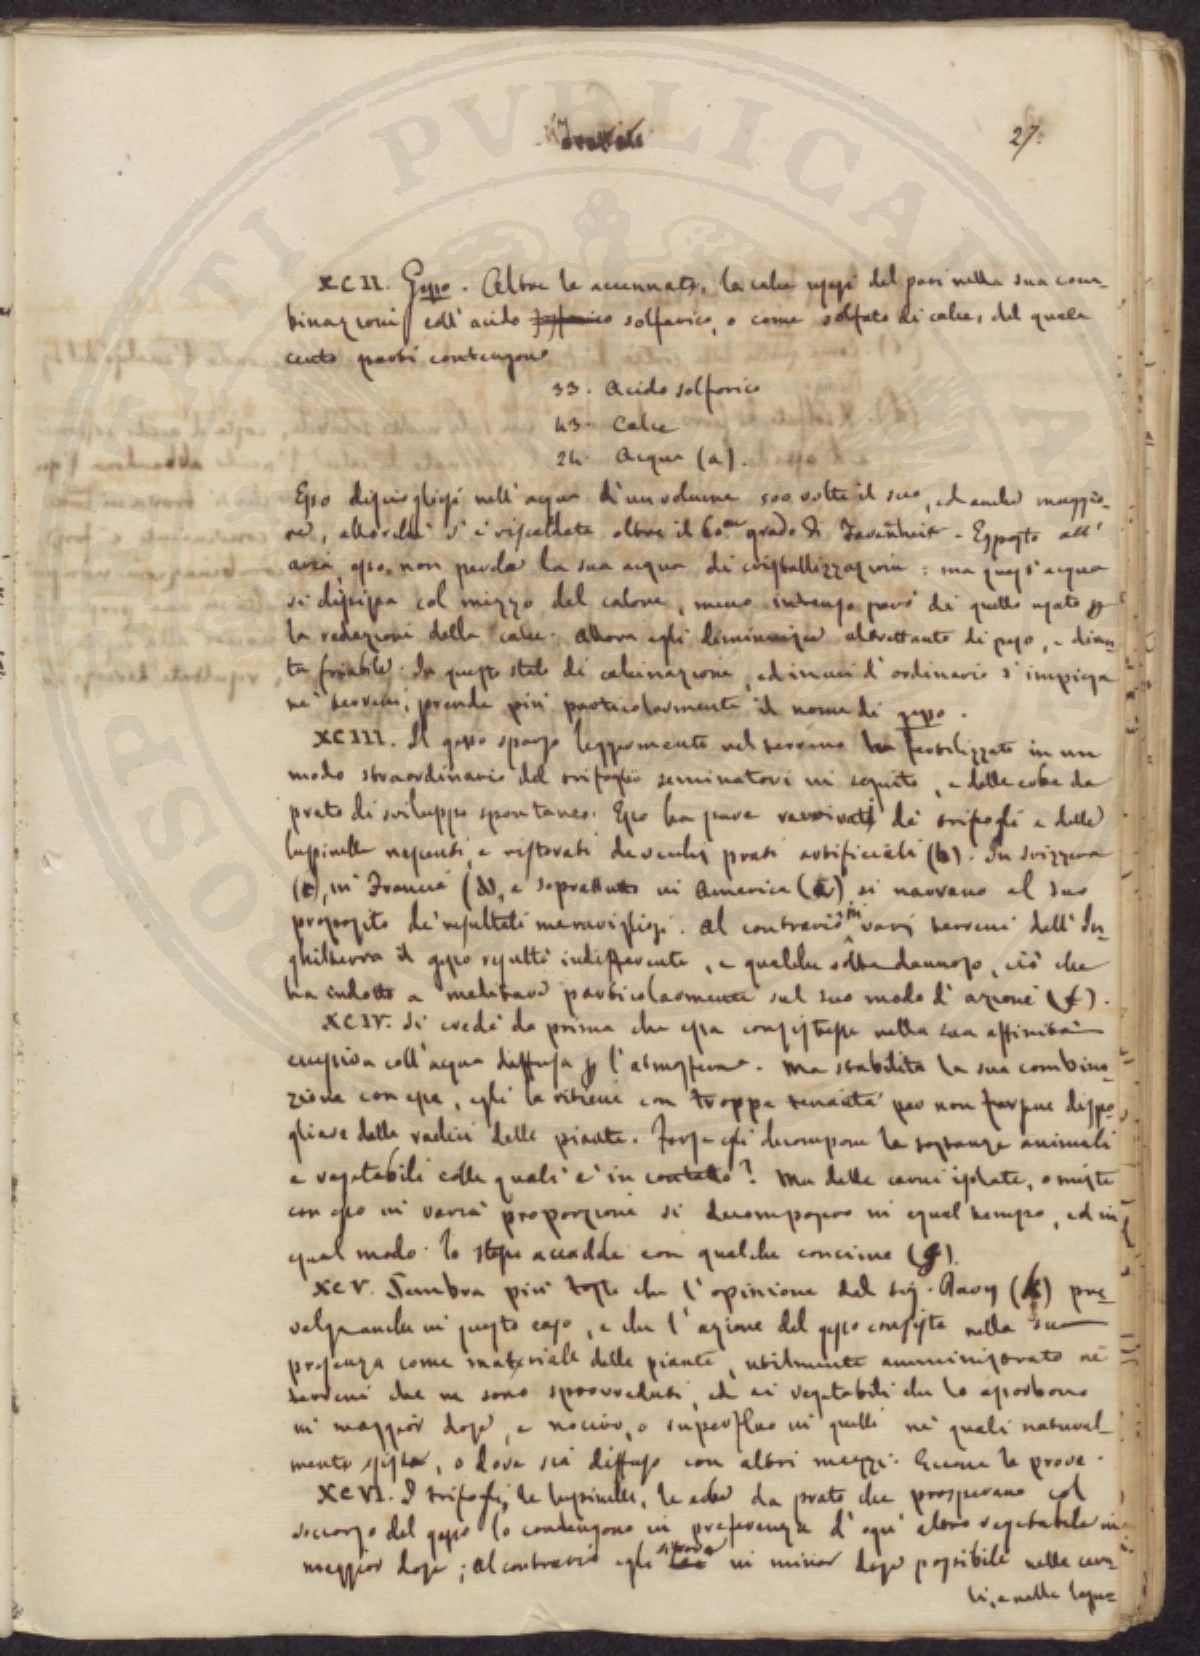 27.
XCII. Gesso. Oltre le accennate, la calce usasi del pari nella sua com-
binazione coll'acido solforico, o come solfato di calce, del quale
cento parti contengono
33. Acido solforico
43. Calce
24. Acqua (a).
Esso disciogliesi nell'acqua d'un volume 500 volte il suo, ed anche maggio-
re, allorchè s'è riscaldata oltre il 60.mo grado di Farenheit. Esposto all'
aria, esso, non perde la sua acqua di cristallizzazione: ma quest'acqua
si dissipa col mezzo del calore, meno intenso però di quello usato p
la reduzione della calce. Allora egli diminuisce altrettanto di peso, e diven-
ta friabile. In questo stato di calcinazione, ed in cui d'ordinario s'impiega
ne' terreni, prende più particolarmente il nome di gesso.
XCIII. Il gesso sparso leggermente nel terreno ha fertilizzato in un
modo straordinario del trifoglio seminatovi in seguito, e delle erbe da
prato di sviluppo spontaneo. Esso ha pure ravvivati de' trifogli e delle
lupinelle nascenti, e ristorati de vecchi prati artificiali (b). In Svizzera
(c), in Francia (d), e soprattutto in America (e) si narrano al suo
proposito de' resultati maravigliosi. Al contrario in varj terreni dell'In-
ghilterra il gesso resultò indifferente, e qualche volta dannoso, ciò che
ha indotto a meditare particolarmente sul suo modo d'azione (f).
XCIV. Si credè da prima che essa consistesse nella sua affinità
eccessiva coll'acqua diffusa p l'atmosfera. Ma stabilita la sua combina-
zione con essa, egli la ritiene con troppa tenacità per non farsene dispo-
gliare dalle radici delle piante. Forse egli decompone le sostanze animali
e vegetabili colle quali è in contatto? Ma delle carni isolate, o miste
con esso in varia proporzione si decomposero in egual tempo, ed in
egual modo. Lo stesso accadde con qualche concime (g).
XCV. Sembra più tosto che l'opinione del sig. Davy (h) pre-
valga anche in questo caso, e che l'azione del gesso consista nella sua
presenza come materiale delle piante, utilmente amministrato ne'
terreni che ne sono sprovveduti, ed ai vegetabili che lo assorbono
in maggior dose, e nocivo, o superfluo in quelli ne' quali natural-
mente esista, o dove sia diffuso con altri mezzi. Eccone le prove.
XCVI. I trifogli, le lupinelle, le erbe da prato che prosperano col
soccorso del gesso lo contengono in preferenza d'ogni altro vegetabile in
maggior dose; al contrario egli si trova in minor dose possibile nelle cerea-
li, e nelle legu-